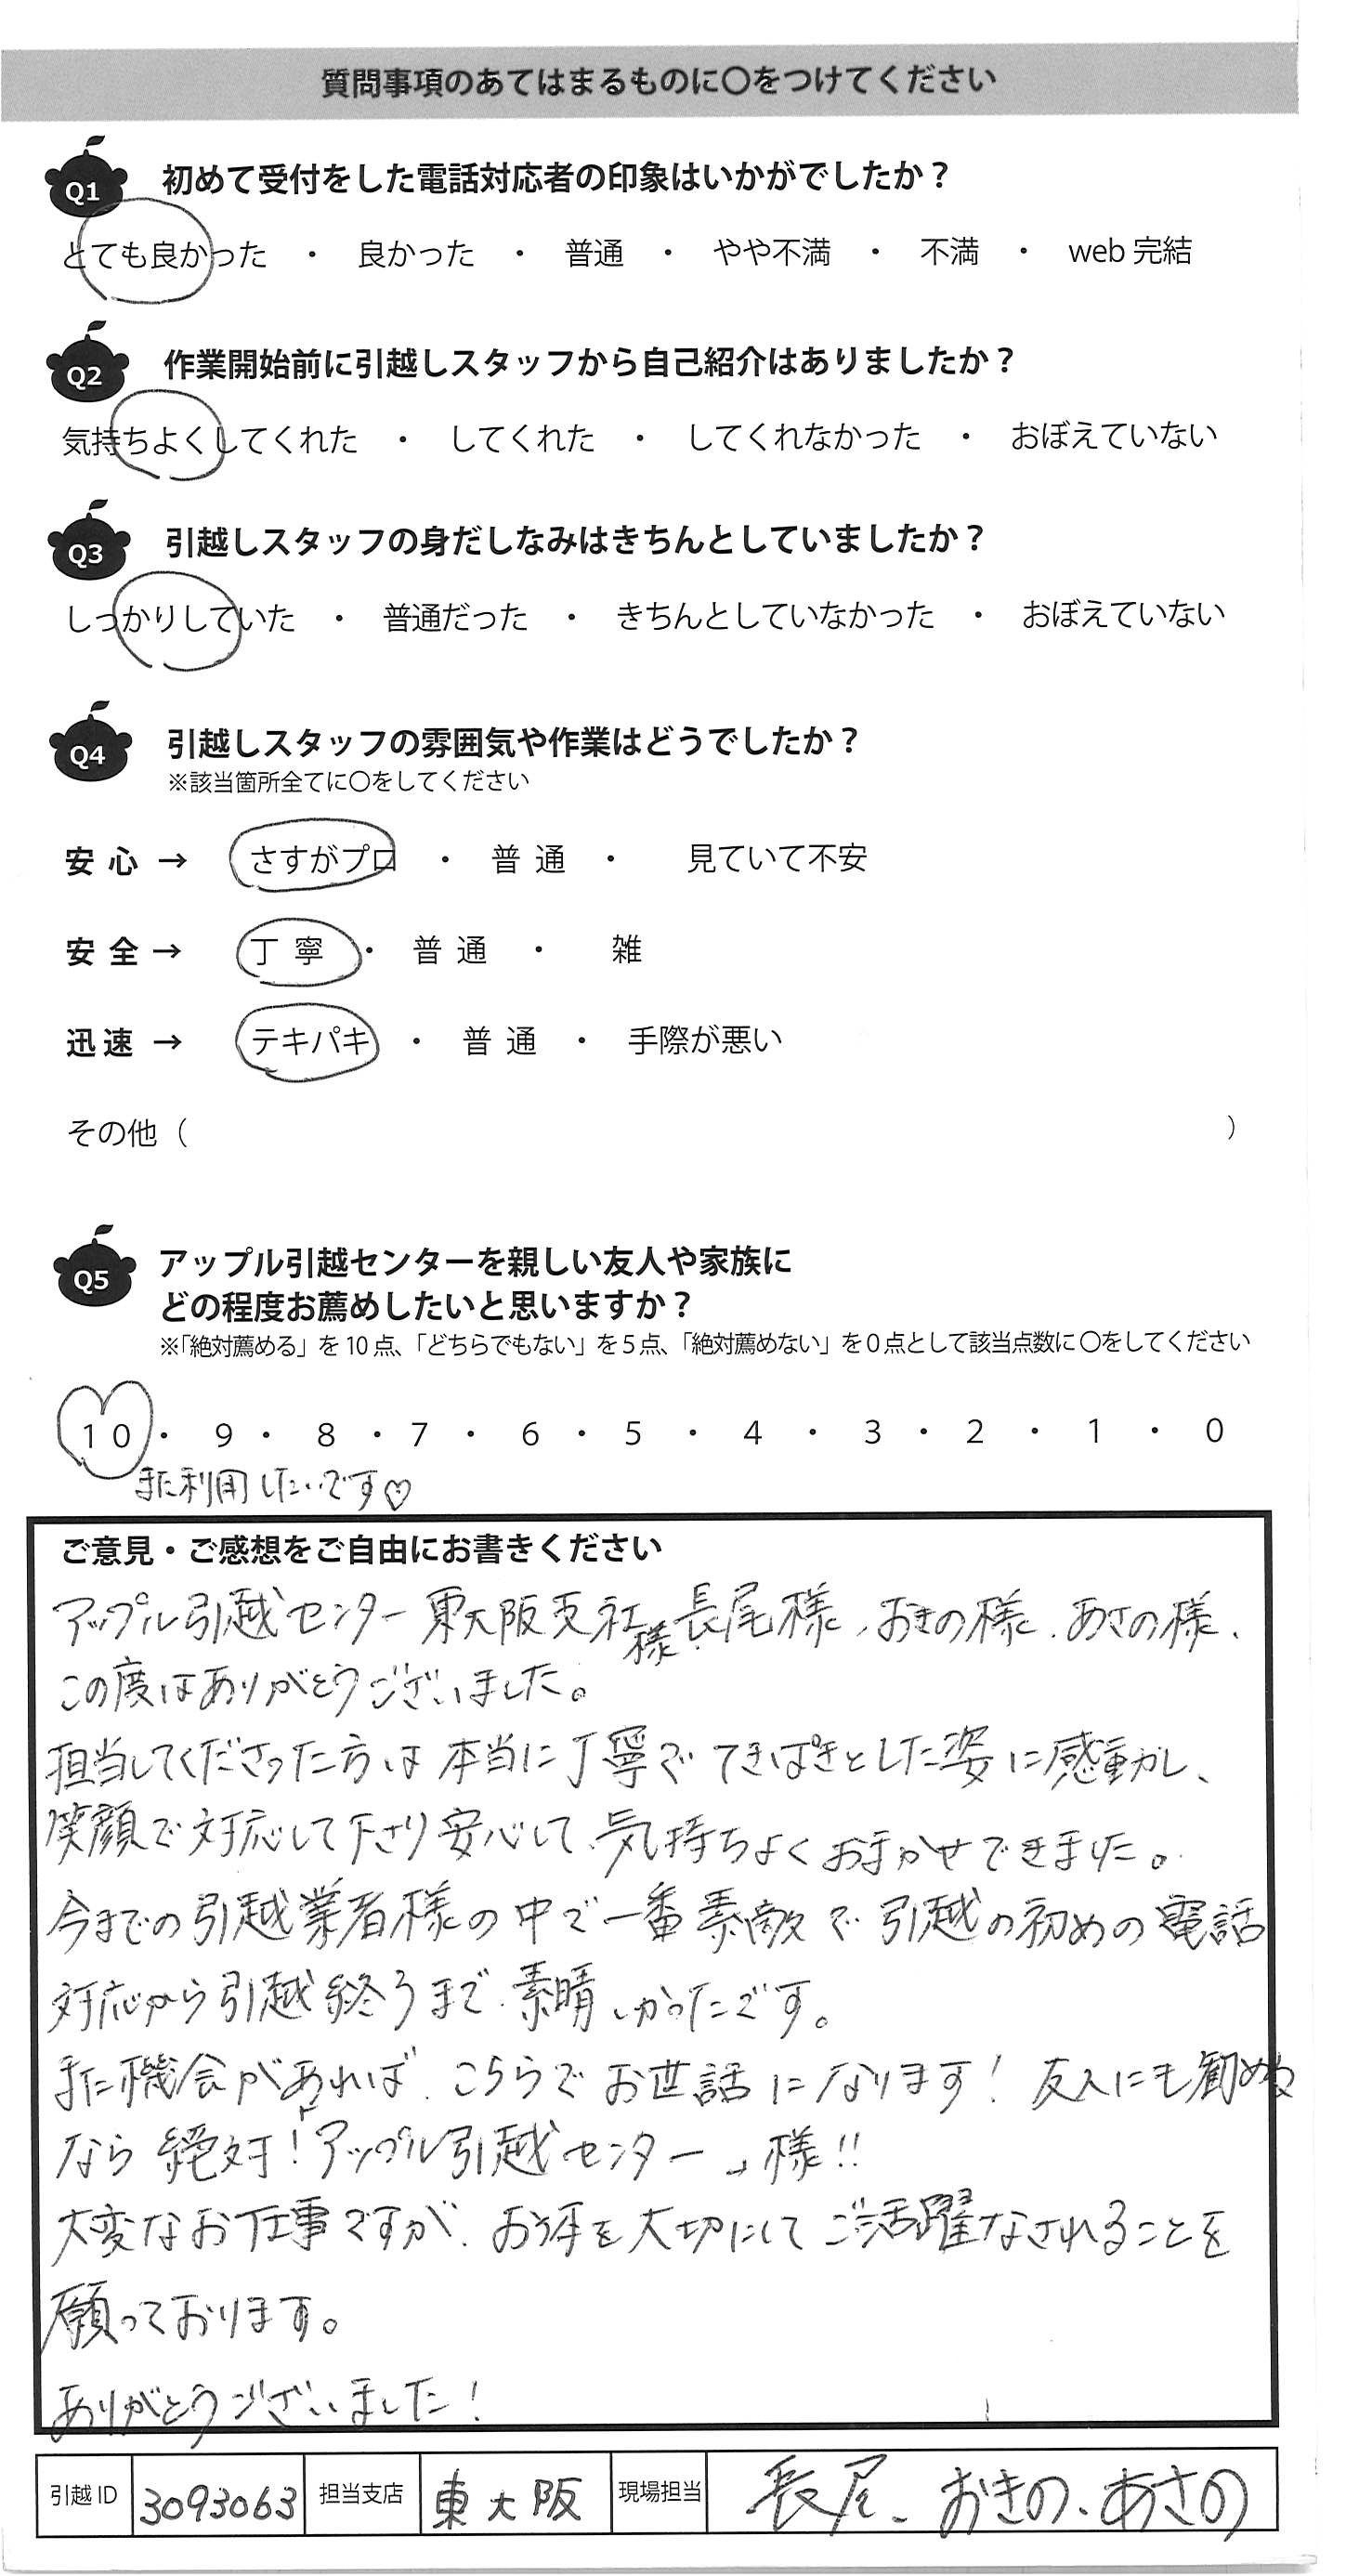 質問事項のあてはまるものに〇をつけてください
Q1 初めて受付をした電話対応者の印象はいかがでしたか？
とても良かった ・ 良かった ・ 普通 ・ やや不満 ・ 不満 ・ web 完結
Q2 作業開始前に引越しスタッフから自己紹介はありましたか？
気持ちよくしてくれた ・ してくれた ・ してくれなかった ・ おぼえていない
Q3 引越しスタッフの身だしなみはきちんとしていましたか？
しっかりしていた ・ 普通だった ・ きちんとしていなかった ・ おぼえていない
Q4 引越しスタッフの雰囲気や作業はどうでしたか？
※該当箇所全てに〇をしてください
安心 → さすがプロ ・ 普通 ・ 見ていて不安
安全 → 丁寧 ・ 普通 ・ 雑
迅速 → テキパキ ・ 普通 ・ 手際が悪い
その他（ ）
Q5 アップル引越センターを親しい友人や家族に
どの程度お薦めしたいと思いますか？
※「絶対薦める」を10点、「どちらでもない」を5点、「絶対薦めない」を0点として該当点数に〇をしてください
10 ・ 9 ・ 8 ・ 7 ・ 6 ・ 5 ・ 4 ・ 3 ・ 2 ・ 1 ・ 0
また利用したいです♡
ご意見・ご感想をご自由にお書きください
アップル引越センター東大阪支社様、長尾様、おきの様、あさの様、
この度はありがとうございました。
担当してくださった方は本当に丁寧で てきぱきとした姿に感動し、
笑顔で対応して下さり安心して、気持ちよくお手かせできました。
今までの引越業者様の中で一番素敵で引越の初めの電話
対応から引越終うまで、素晴しかったです。
また機会があれば、こちらでお世話になります！友人にも勧める
なら絶対！「アップル引越センター」様!!
大変なお仕事ですが、お体を大切にしてご活躍なされることを
願っております。
ありがとうございました！
引越ID 3093063 担当支店 東大阪 現場担当 長尾、おきの、あさの